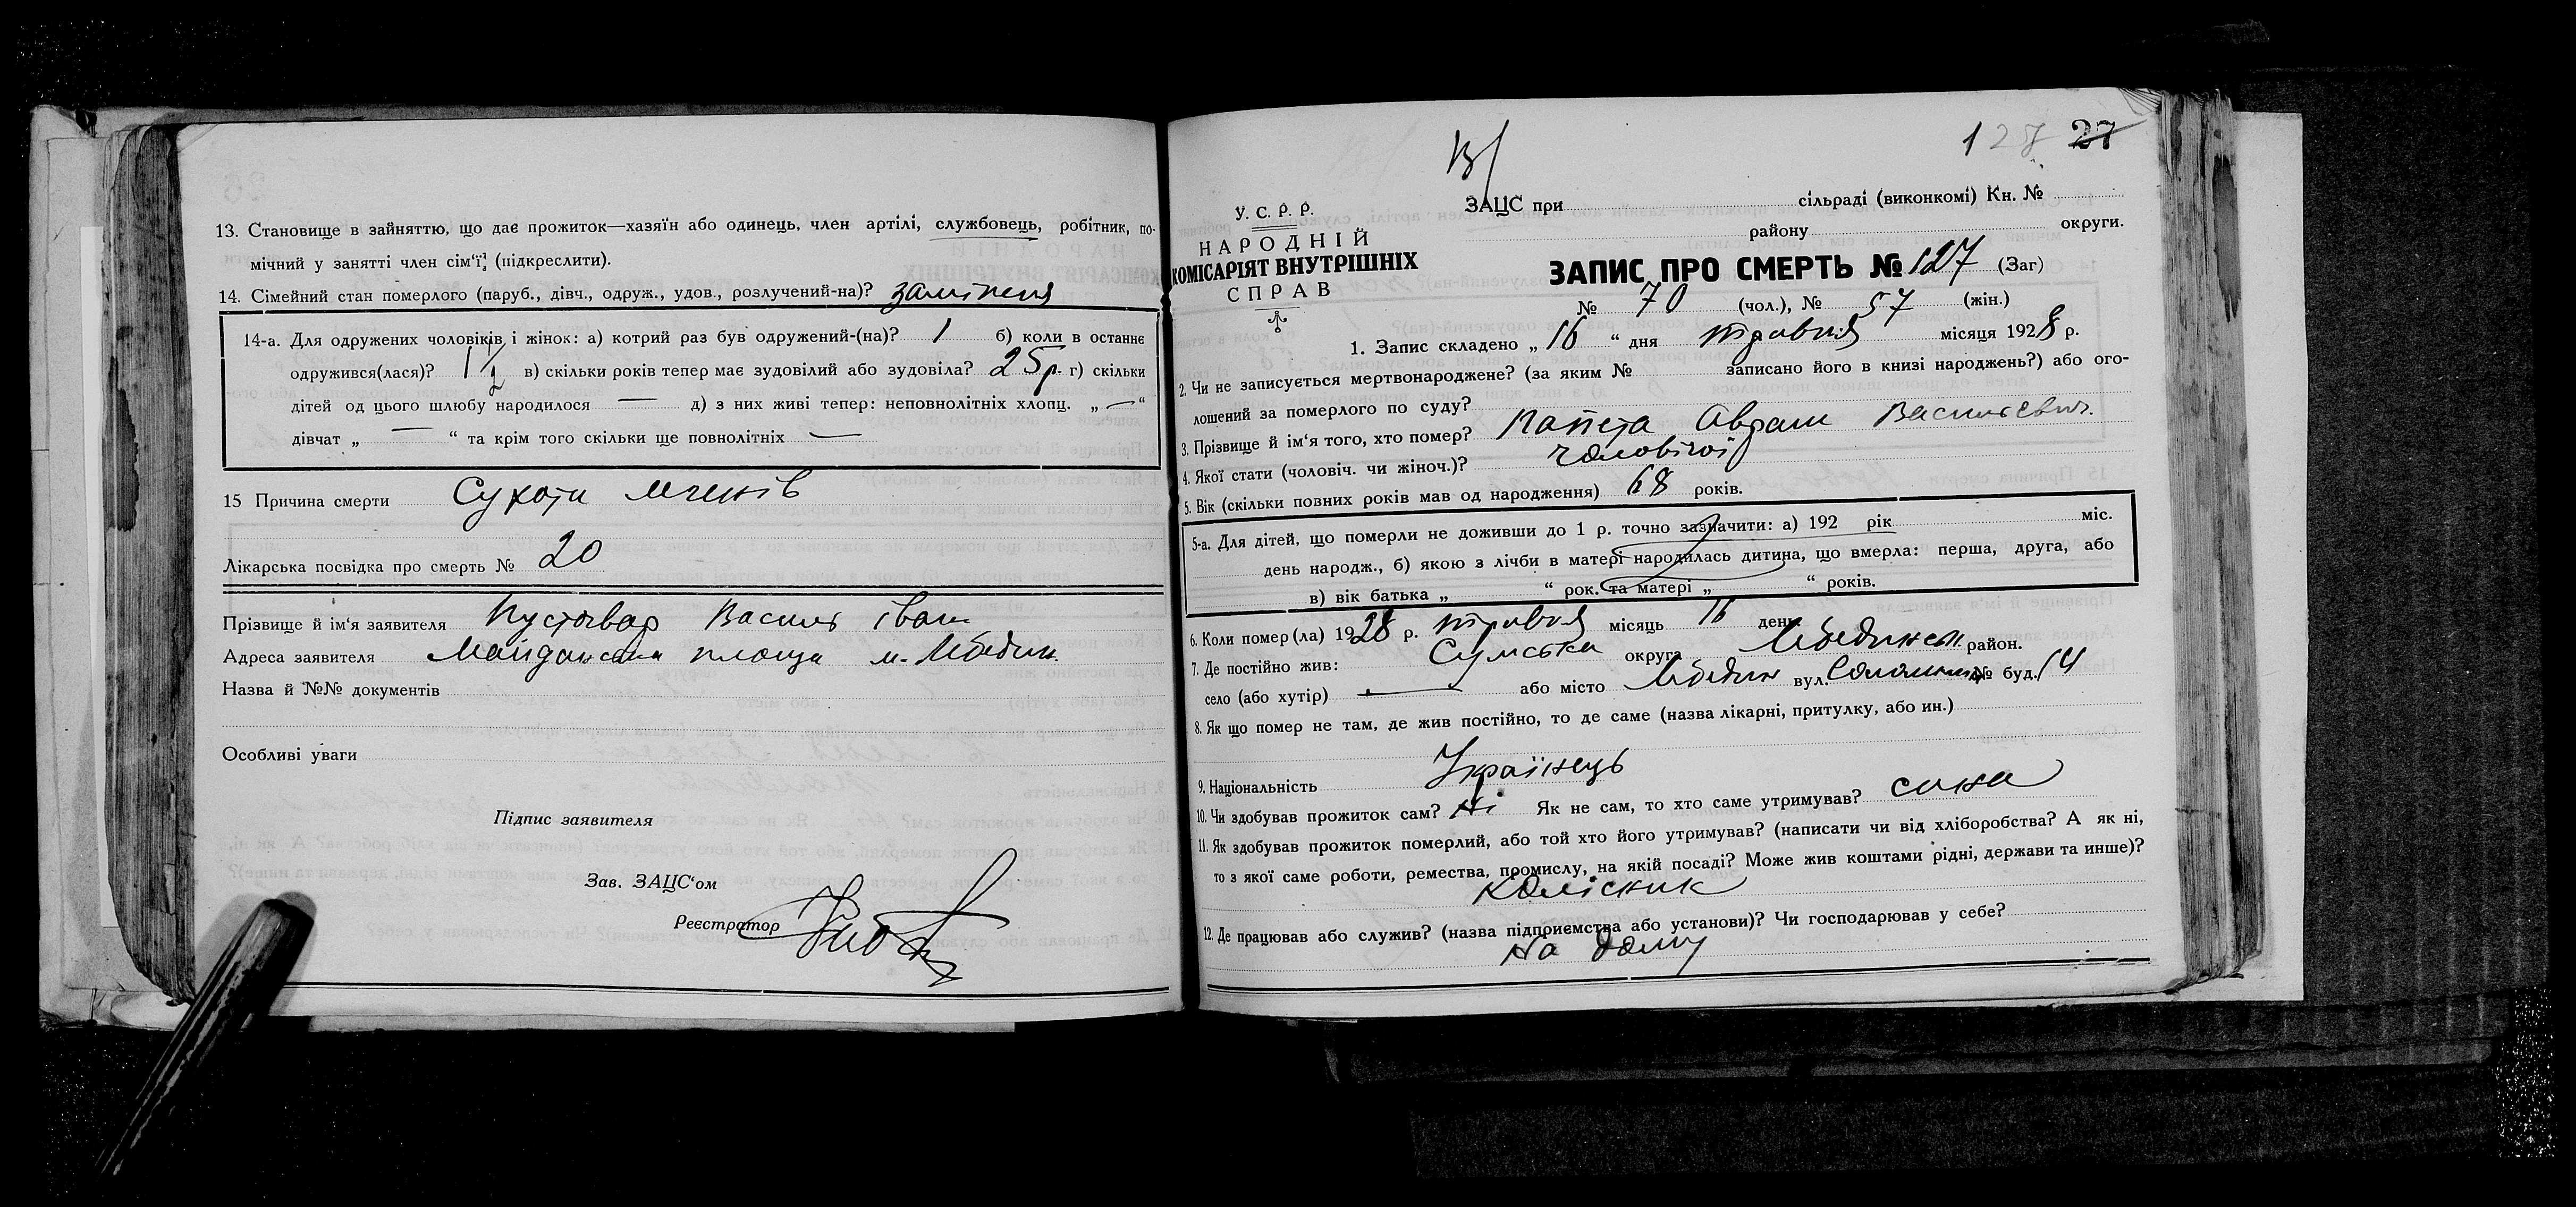 13. Становище в зайняттю, що дає прожиток—хазяїн або одинець, член артілі, службовець, робітник, по-
мічний у занятті член сім'ї, (підкреслити).
14. Сімейний стан померлого (паруб., дівч., одруж., удов., розлучений-на)?
14-а. Для одружених чоловіків і жінок: а) котрий раз був одружений-(на)? 1 б) коли в останнє
одружився(лася)? в) скільки років тепер має зудовілий або зудовіла? 25 р. г) скільки
дітей од цього шлюбу народилося — д) з них живі тепер: неповнолітніх хлопц. „ — “
дівчат „ — “ та крім того скільки ще повнолітніх —
15 Причина смерти Сухоти легенів
Лікарська посвідка про смерть № 20
Прізвище й ім'я заявителя Пустовар Василь Іван
Адреса заявителя Майданська площа м. Лебедин.
Назва й №№ документів
Особливі уваги
Підпис заявителя
Зав. ЗАЦС'ом
Реєстратор
128 27
У. С. Р. Р.
НАРОДНІЙ
КОМІСАРІЯТ ВНУТРІШНІХ
СПРАВ
ЗАЦС при сільраді (виконкомі) Кн. №
району округи.
ЗАПИС ПРО СМЕРТЬ № 127 (Заг)
№ 70 (чол.), № 57 (жін.)
1. Запис складено „ 16 “ дня травня місяця 1928 р.
2. Чи не записується мертвонароджене? (за яким № записано його в книзі народжень?) або ого-
лошений за померлого по суду?
3. Прізвище й ім'я того, хто помер? Аврам Васильєвич.
4. Якої стати (чоловіч. чи жіноч.)? чоловічої
5. Вік (скільки повних років мав од народження) 68 років.
5-а. Для дітей, що померли не доживши до 1 р. точно зазначити: а) 192 рік міс.
день народж., б) якою з лічби в матері народилась дитина, що вмерла: перша, друга, або
в) вік батька „ “ рок. та матері „ “ років.
6. Коли помер(ла) 1928 р. травня місяць 16 день
7. Де постійно жив: Сумська округа Лебединськ район.
село (або хутір) — або місто Лебедин вул. № буд. 14
8. Як що помер не там, де жив постійно, то де саме (назва лікарні, притулку, або ин.)
9. Національність Українець
10. Чи здобував прожиток сам? Ні Як не сам, то хто саме утримував? сина
11. Як здобував прожиток померлий, або той хто його утримував? (написати чи від хліборобства? А як ні,
то з якої саме роботи, ремества, промислу, на якій посаді? Може жив коштами рідні, держави та инше)?
Колісник
12. Де працював або служив? (назва підприємства або установи)? Чи господарював у себе?
На дому